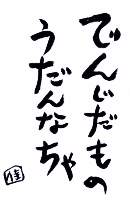 でんじだもの
うだんなちゃ
佳